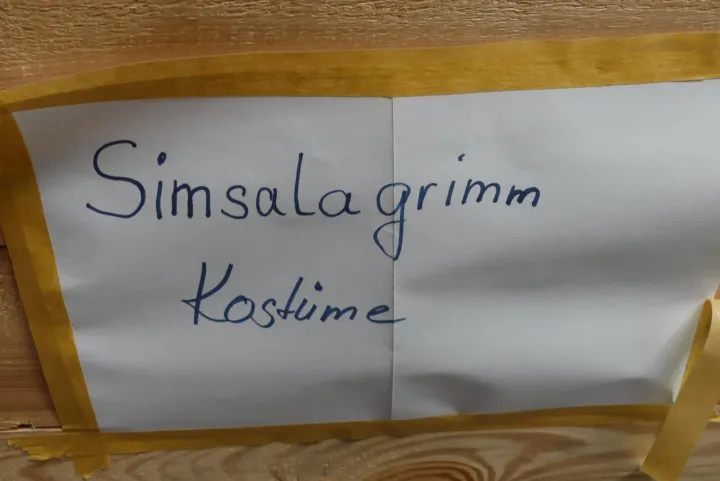 Simsalagrimm
Kostüme